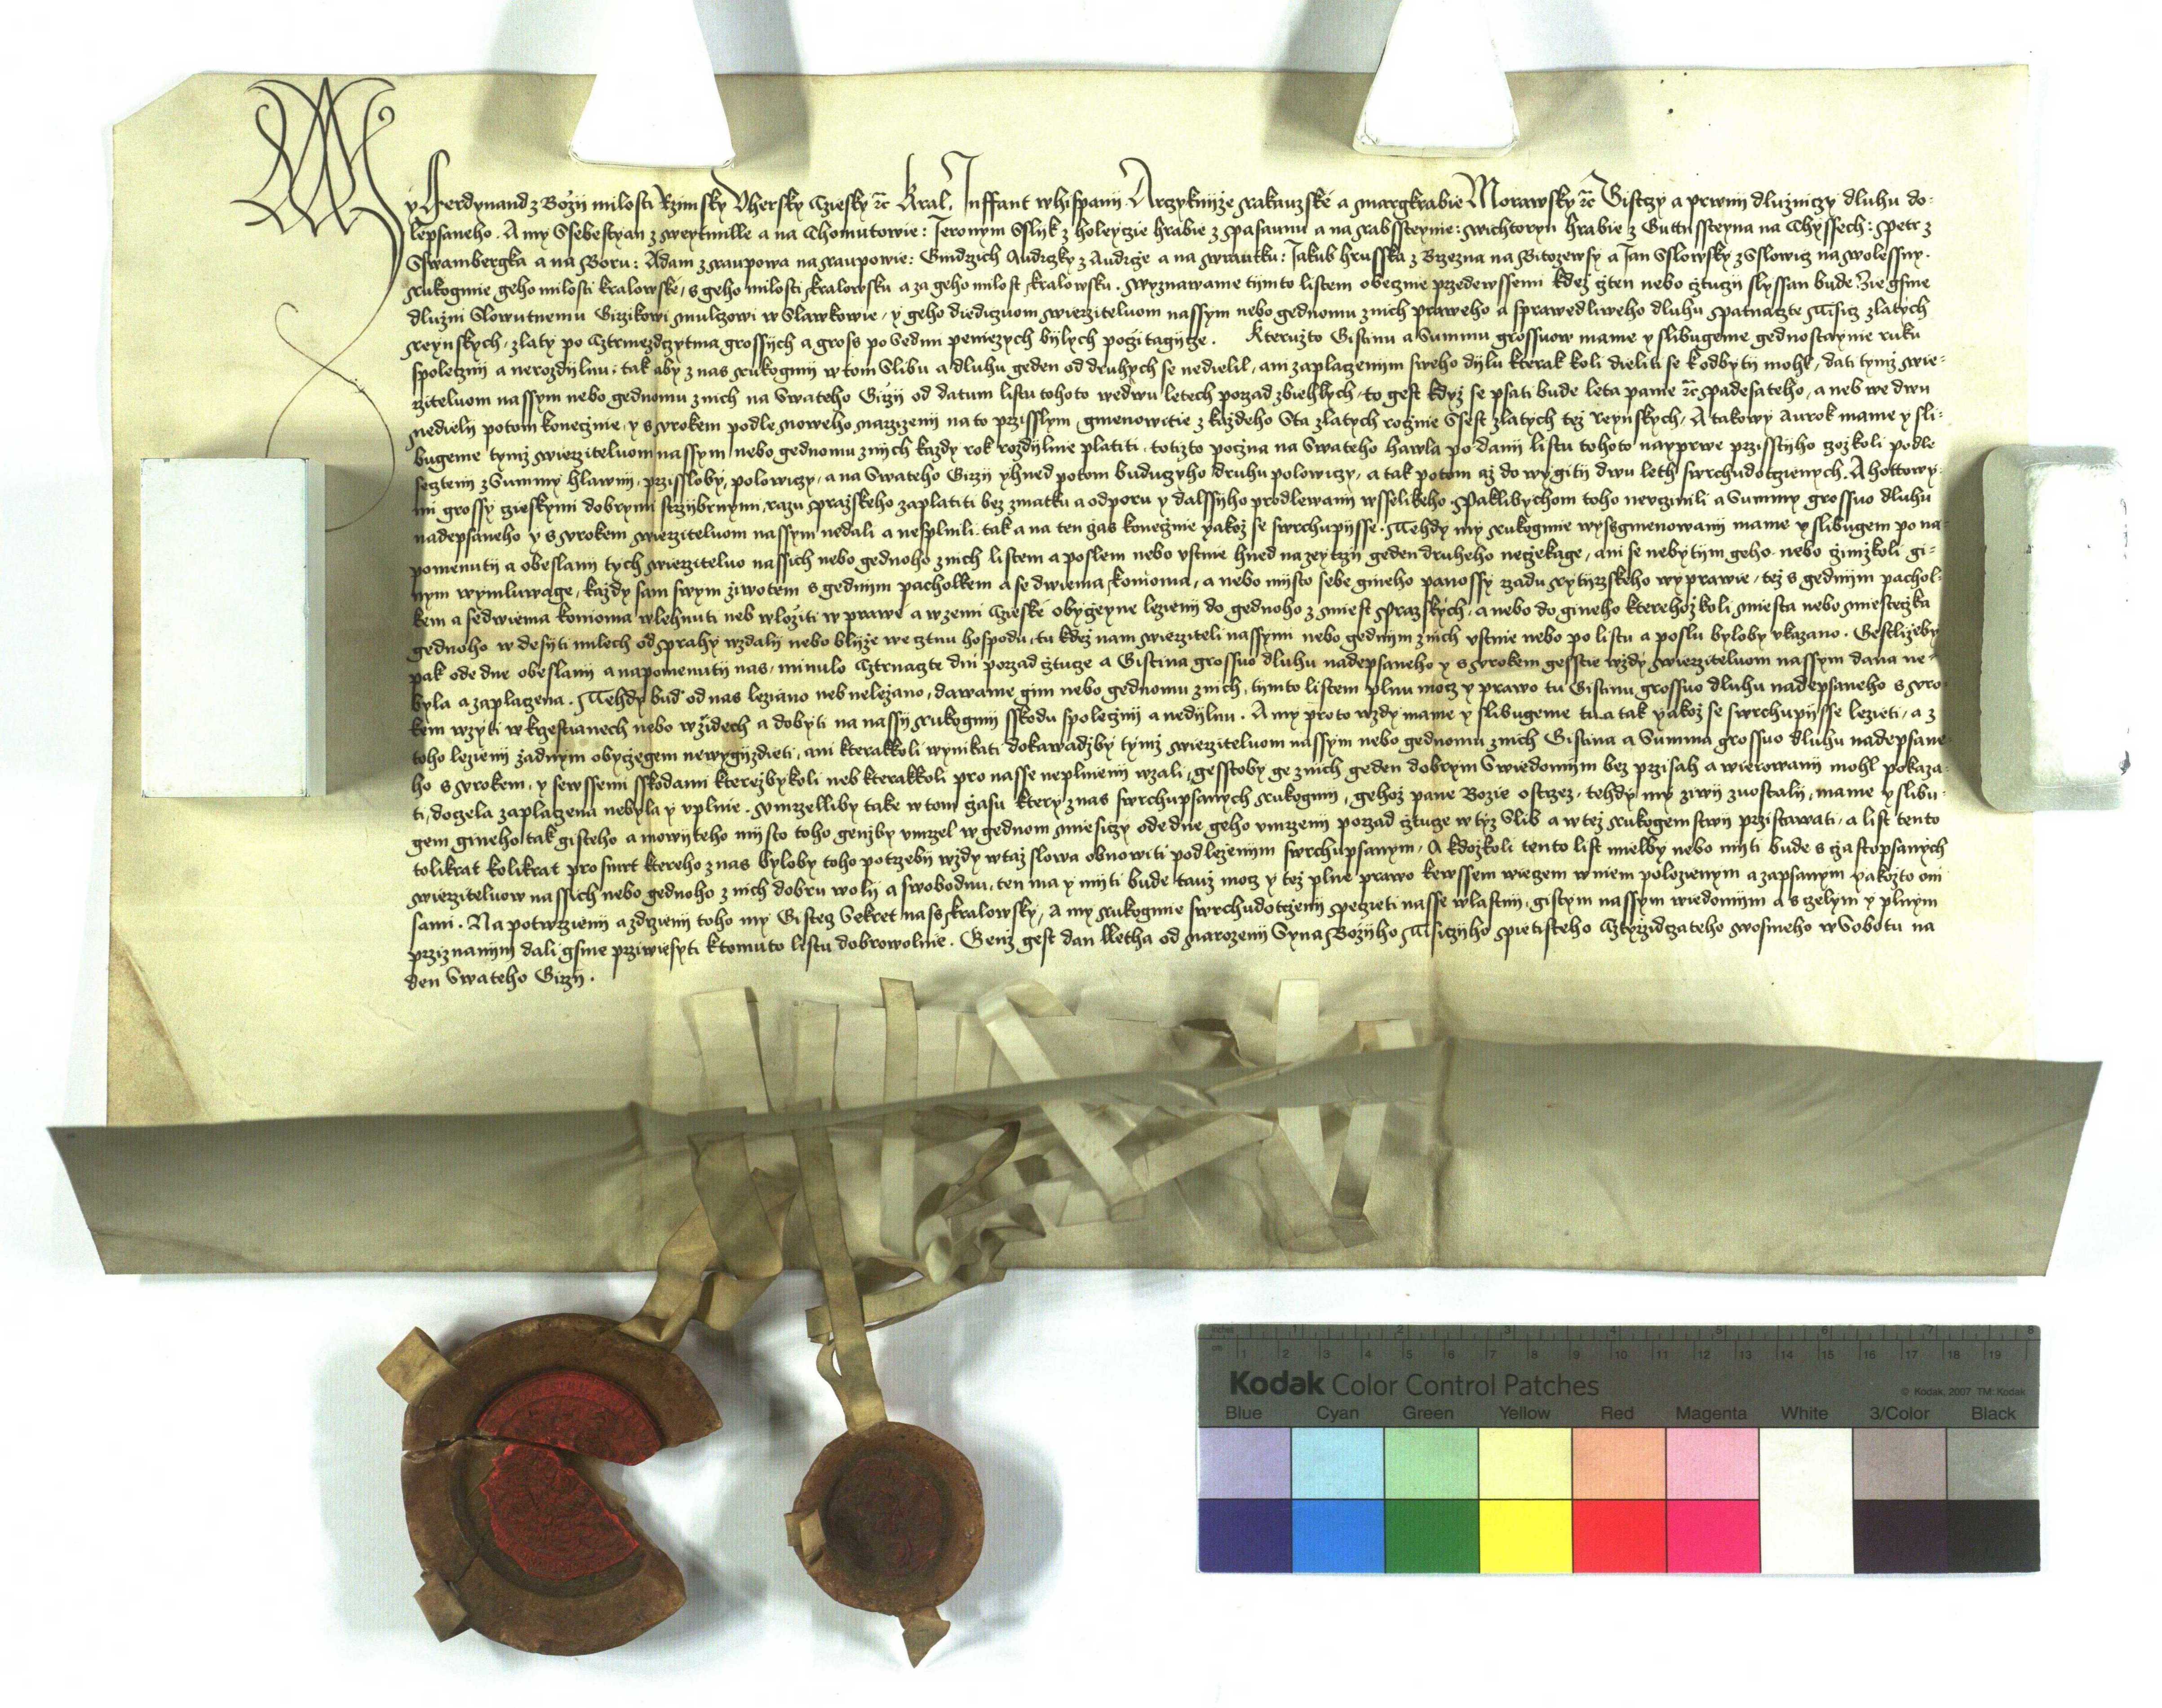 My Ferdynand z Bozij milosti Rzimsky Vhersky Cziesky ꝛc Kral. Inffant w hispanij Arczyknijze Rakauzske a Margkrabie Morawsky ꝛc Gistczy a prwnij dluzniczy dluhu do-
lepsaneho. A my Ssebestyan z Weytmille a na Chomutowie: Jeronym Sslyk z holeyczie hrabie z Pasaunu a na Rabssteynie: Wichtoryn hrabie z Guttnssteyna na Chyssech: Petr z
Sswambergka a na Boru: Adam z Raupowa na Raupowie: Gindrzich Audrczky z Audrcze a na Swautku: Jakub hrusska z Brzezna na Bitozewsy a Jan Vslowsky z Vslowicz na Wolessny.
Rukogmie geho milosti kralowske, s geho milosti kralowsku a za geho milost kralowsku. Wyznawame tijmto listem obecznie przedewssemi kdez czten nebo cztuczij slyssan bude. zie gsme
dluzni Slowutnemu Girzikowi Mulczowi w Slawkowie, y geho diediczuom wierziteluom nassym nebo gednomu z nich praweho a sprawedliweho dluhu Patnaczte Tisicz zlatych
Reynskych, zlaty po Cztrmezdczytma grossijch a gross po Sedmi peniezych bijlych poczitagijcze. Kteruzto Gistinu a Summu grossuow mame y slibugeme gednostaynie ruku
spolecznij a nerozdijlnu: tak aby z nas Rukogmij w tom Slibu a dluhu geden od druhych se nedielil, ani zaplaczenijm sweho dijlu kterak koli dieliti se k odbyti mohl, dati tijmz wie-
rziteluom nassym nebo gednomu z nich na Swateho Girzij od datum listu tohoto wedwu letech porzad zbiehlych, to gest kdyz se psati bude leta panie ꝛc Padesateho, a neb we dwu
Nedielij potom konecznie, y s vrokem podle noweho narzizenij na to przisslym, gmenowitie z kazdeho Sta zlatych rocznie Ssest zlatych tez Reynskych, A takowy Aurok mame y sli-
bugeme tijmz wierziteluom nassym nebo gednomu z nich kazdy rok rozdijlnie platiti. totizto poczna na Swateho hawla po danij listu tohoto nayprwe przisstijho czozkoli podle
secztenij z Summy hlawnij, przisloby, polowiczy, a na Swateho Girzij yhned potom buduczyho druhu polowiczy, a tak potom az do wygitij dwu leth swrchudotczienych. A hottowy-
mi grossy czieskymi dobrymi strzijbrnymi, razu Prazskeho zaplatiti bez zmatku a odporu y dalssijho prodlewanij wsselikeho. Paklibychom toho nevczinili a Summy grossuo dluhu
nadepsaneho y s vrokem wierziteluom nassym nedali a nesplnili. tak a na ten czas konecznie yakoz se swrchupijsse. Tehdy my Rukogmie wyssgmenowanij mame y slibugem po na-
pomenutij a obeslanij tych wierziteluo nassich nebo gednoho z nich listem a poslem nebo vstnie hned na zeytrzij geden druheho neczekage, ani se nebytijm geho. nebo czimzkoli gi-
nym wymluwage, kazdy sam swym ziwotem s gednijm pacholkem a se dwiema konioma, a nebo mijsto sebe gineho panossy rzadu Rytijrzskeho wyprawie, tez s gednijm pachol-
kem a sedwiema konioma wlehnuti neb wloziti w prawe a w zemi Czieske obyczeyne lezienij do gednoho z Miest Prazskych, a nebo do gineho kterehozkoli Miesta nebo Miesteczka
gednoho w desijti milech od Prahy wzdalij nebo blijze we cztnu hospodu, tu kdez nam wierziteli nassymi nebo gednijm z nich vstnie nebo po listu a poslu byloby vkazano. Gestlizeby
pak ode dne obeslanij a napomenutij nas, minulo Cztrnaczte dni porzad cztucze a Gistina grossuo dluhu nadepsaneho y s vrokem gesscie wzdy wierziteluom nassym dana ne-
byla a zaplaczena. Tehdy bud od nas leziano neb nelezano, dawame gim nebo gednomu z nich, tijmto listem plnu mocz y prawo tu Gistinu grossuo dluhu nadepsaneho s vro-
kem wzyti w krzestianech nebo w zidech a dobyti na nassij Rukogmij sskodu spolecznij a nedijlnu. A my proto wzdy mame y slibugeme tu a tak yakoz se swrchupijsse lezieti, a z
toho lezienij zadnym obyczegem newygijzdieti, ani kterakkoli wynikati dokawadzby tijmz wierziteluom nassym nebo gednomu z nich Gistina a Summa grossuo dluhu nadepsane-
ho s vrokem, y sewssemi sskodami kterezbykoli neb kterakkoli pro nasse neplnienij wzali, gesstoby ge z nich geden dobrym Swiedomijm bez przisah a wierowanij mohl pokaza-
ti, doczela zaplaczena nebyla y vplnie. Vmrzelliby take w tom czasu ktery z nas swrchupsanych Rukogmij, gehoz pane Bozie ostrzez, tehdy my ziwij zuostalij, mame y slibu-
gem gineho tak gisteho a mowijteho mijsto toho genzby vmrzel w gednom Miesiczy ode dne geho vmrzenij porzad cztucze w tyz Slib a w tez Rukogemstwij przistawiti, a list tento
tolikrat kolikrat pro smrt ktereho z nas byloby toho potrzebij wzdy w taz slowa obnowiti pod lezenijm swrchupsanym, A kdozkoli tento list mielby nebo mijti bude s czastopsanych
wierziteluow nassich nebo gednoho z nich dobru wolij a swobodnu, ten ma y mijti bude tauz mocz y tez plne prawo kewssem wieczem w niem polozienym a zapsanym yakozto oni
sami. Na potwrzenij a zdrzienij toho my Gistecz Sekret nass kralowsky, A my Rukogmie swrchudotczenij Peczieti nasse wlastnij, gistym nassym wiedomijm a s czelym y plnym
przyznanijm dali gsme przywiesyti k tomuto listu dobrowolnie. Genz gest dan lletha od narozenij Syna Bozijho Tisiczijho Pietisteho Cztyrzidczateho wosmeho w Sobotu na
den Swateho Girzij.
inches 1 2 3 4 5 6 7 8
cm 1 2 3 4 5 6 7 8 9 10 11 12 13 14 15 16 17 18 19
Kodak Color Control Patches © Kodak, 2007 TM: Kodak
Blue Cyan Green Yellow Red Magenta White 3/Color Black